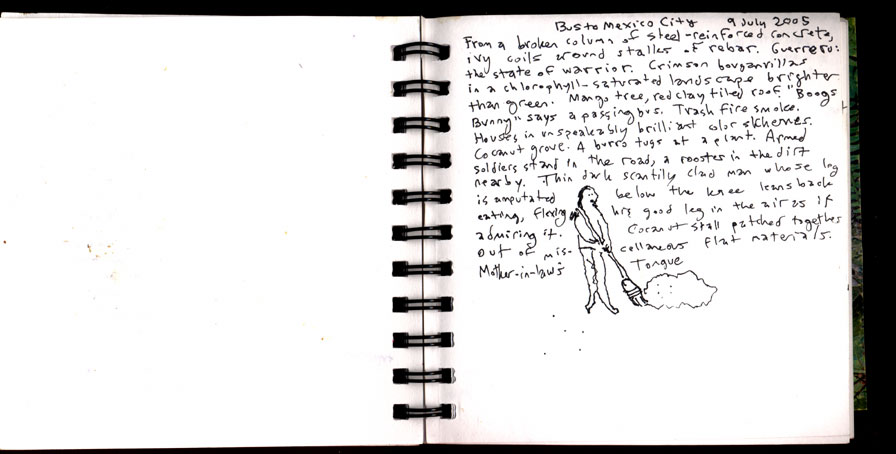 Bus to Mexico City 9 July 2005
From a broken column of steel-reinforced concrete,
ivy coils around stalks of rebar. Guerrero:
the state of warrior. Crimson bouganvillas
in a chlorophyll-saturated landscape brighter
than green. Mango tree, red clay tiled roof. "Boogs
Bunny" says a passing bus. Trash fire smoke.
Houses in unspeakably brilliant color skhemes.
Coconut grove. A burro tugs at a plant. Armed
soldiers stand in the road, a rooster in the dirt
nearby. Thin dark scantily clad man whose leg
is amputated below the knee leans back
eating, flexing his good leg in the air as if
admiring it. Coconut stall patched together
out of mis- cellaneous flat materials.
Mother-in-law's Tongue